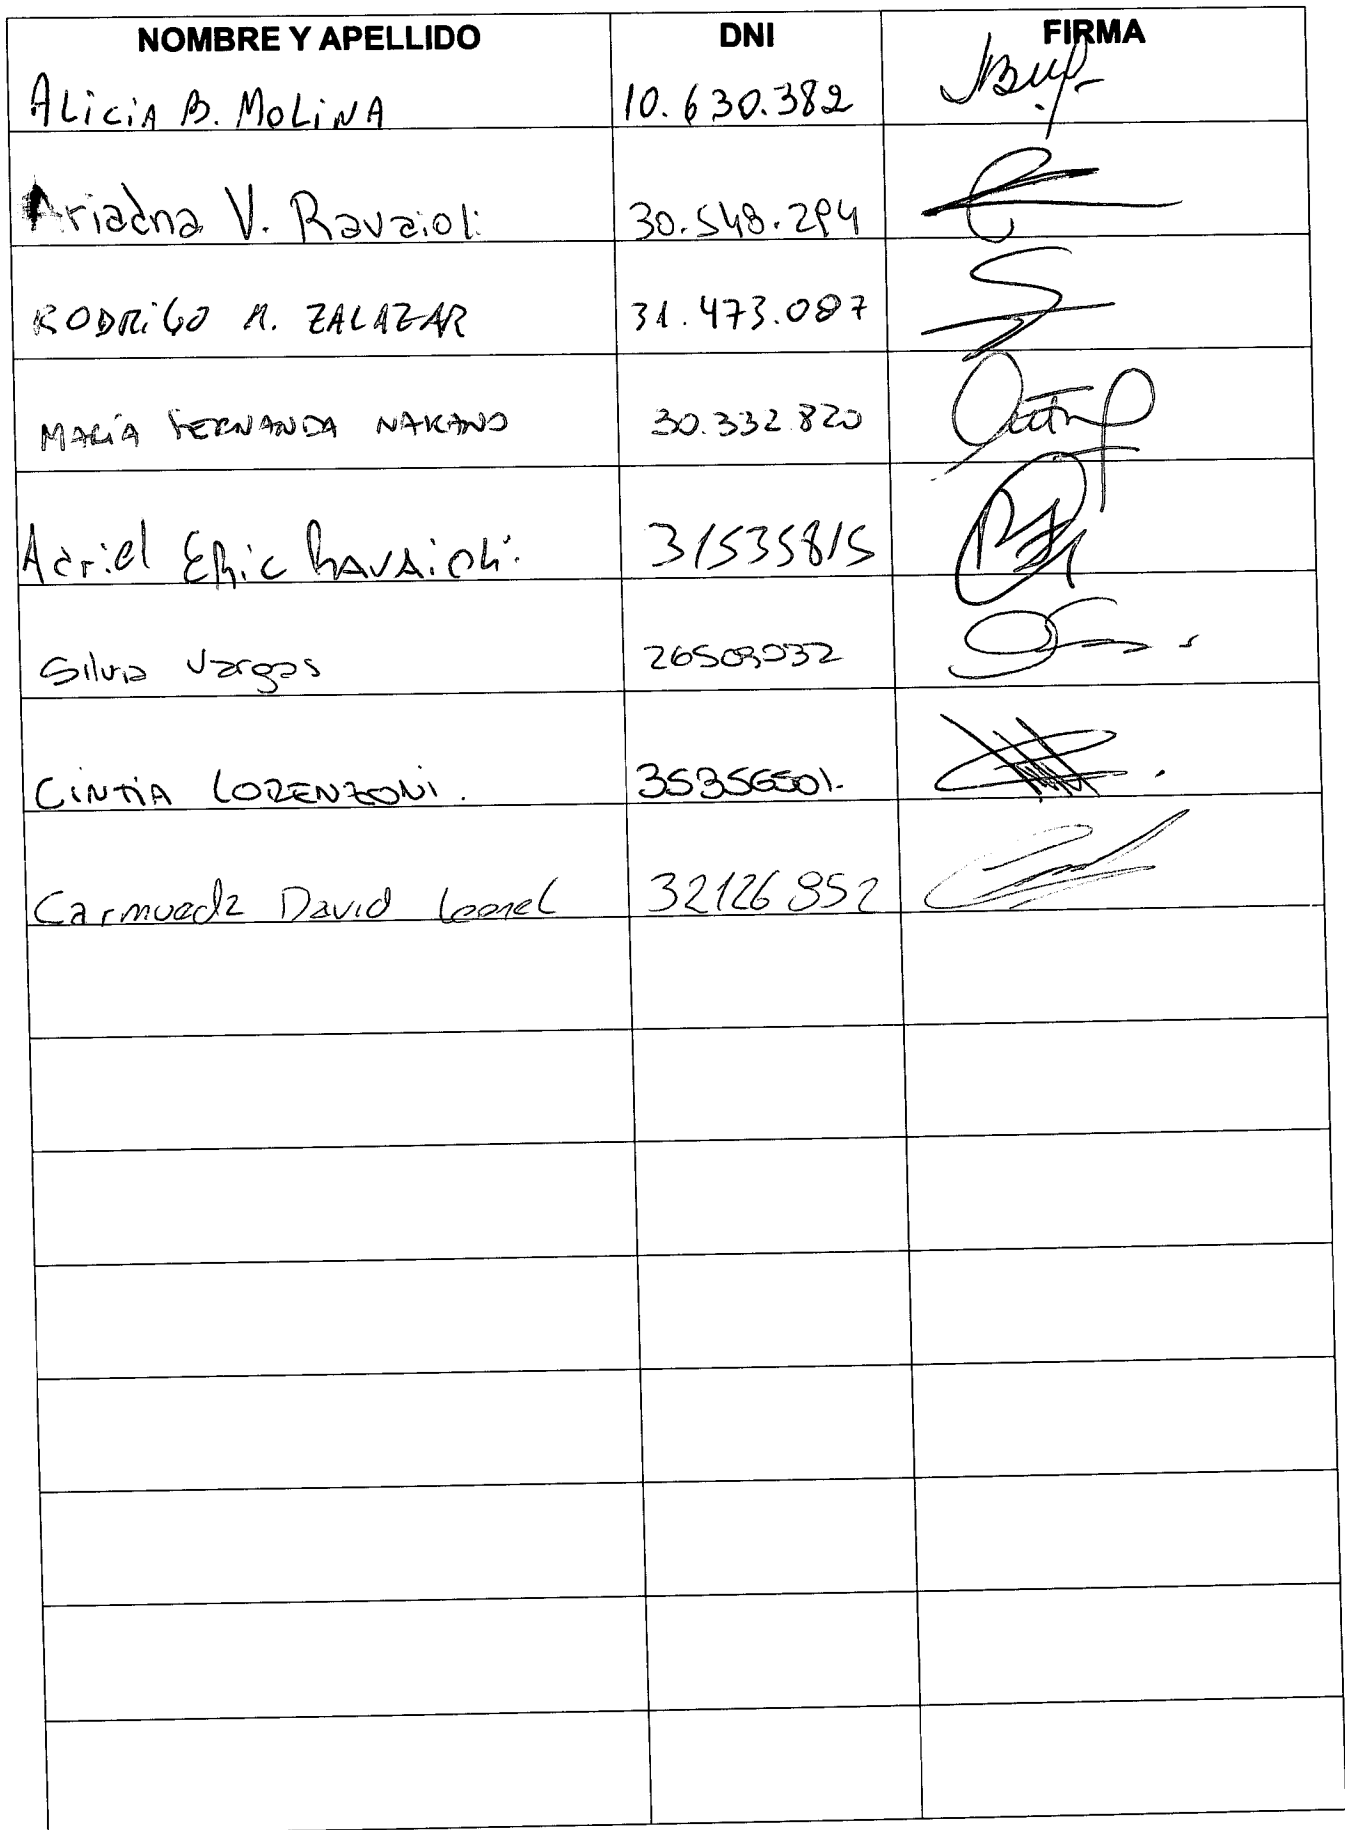 NOMBRE Y APELLIDO DNI FIRMA
ALiciA B. MOLiNA 10.630.382
Ariadna V. Ravaioli 30.548.294
RODRiGO A. ZALAZAR 31.473.087
MARÍA FERNANDA NAKANO 30.332.820
Adriel ERic RAVAiOLi 31535815
Silvia Vargas 26509032
CiNTIA LORENZONi. 35356501.
David Leonel 32126952